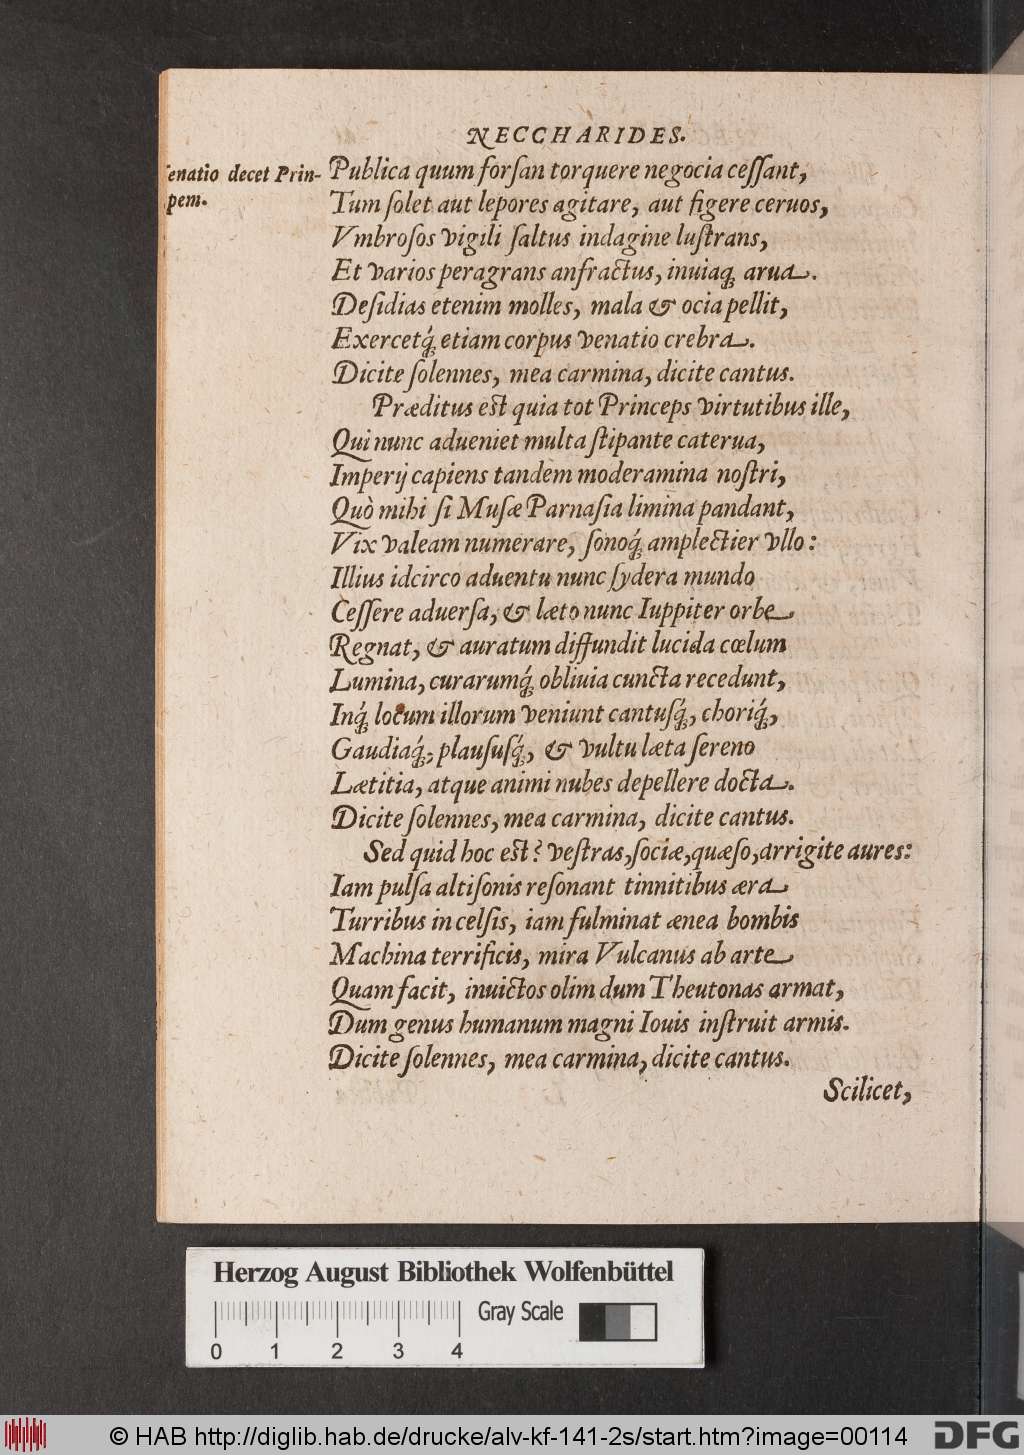 NECCHARIDES.
enatio decet Prin-
pem.
Publica quum forſan torquere negocia ceſſant,
Tum ſolet aut lepores agitare, aut figere ceruos,
Vmbroſos vigili ſaltus indagine luſtrans,
Et varios peragrans anfractus, inuiaq́ arua.
Deſidias etenim molles, mala & ocia pellit,
Exercetq́ etiam corpus venatio crebra.
Dicite ſolennes, mea carmina, dicite cantus.
Præditus est quia tot Princeps virtutibus ille,
Qui nunc adueniet multa ſtipante caterua,
Imperij capiens tandem moderamina noſtri,
Quò mihi ſi Muſæ Parnaſia limina pandant,
Vix valeam numerare, ſonoq́ amplectier vllo:
Illius idcirco aduentu nunc ſydera mundo
Ceſſere aduerſa, & læto nunc Iuppiter orbe
Regnat, & auratum diffundit lucida cœlum
Lumina, curarumq́ obliuia cuncta recedunt,
Inq́ locum illorum veniunt cantuſq́, choriq́,
Gaudiaq́, plauſuſq́, & vultu læta ſereno
Lætitia, atque animi nubes depellere docta.
Dicite ſolennes, mea carmina, dicite cantus.
Sed quid hoc est? veſtras, ſociæ, quæſo, arrigite aures:
Iam pulſa altiſonis reſonant tinnitibus æra
Turribus in celſis, iam fulminat ænea bombis
Machina terrificis, mira Vulcanus ab arte
Quam facit, inuictos olim dum Theutonas armat,
Dum genus humanum magni Iouis inſtruit armis.
Dicite ſolennes, mea carmina, dicite cantus.
Scilicet,
Herzog August Bibliothek Wolfenbüttel
Gray Scale
0 1 2 3 4
© HAB http://diglib.hab.de/drucke/alv-kf-141-2s/start.htm?image=00114
DFG